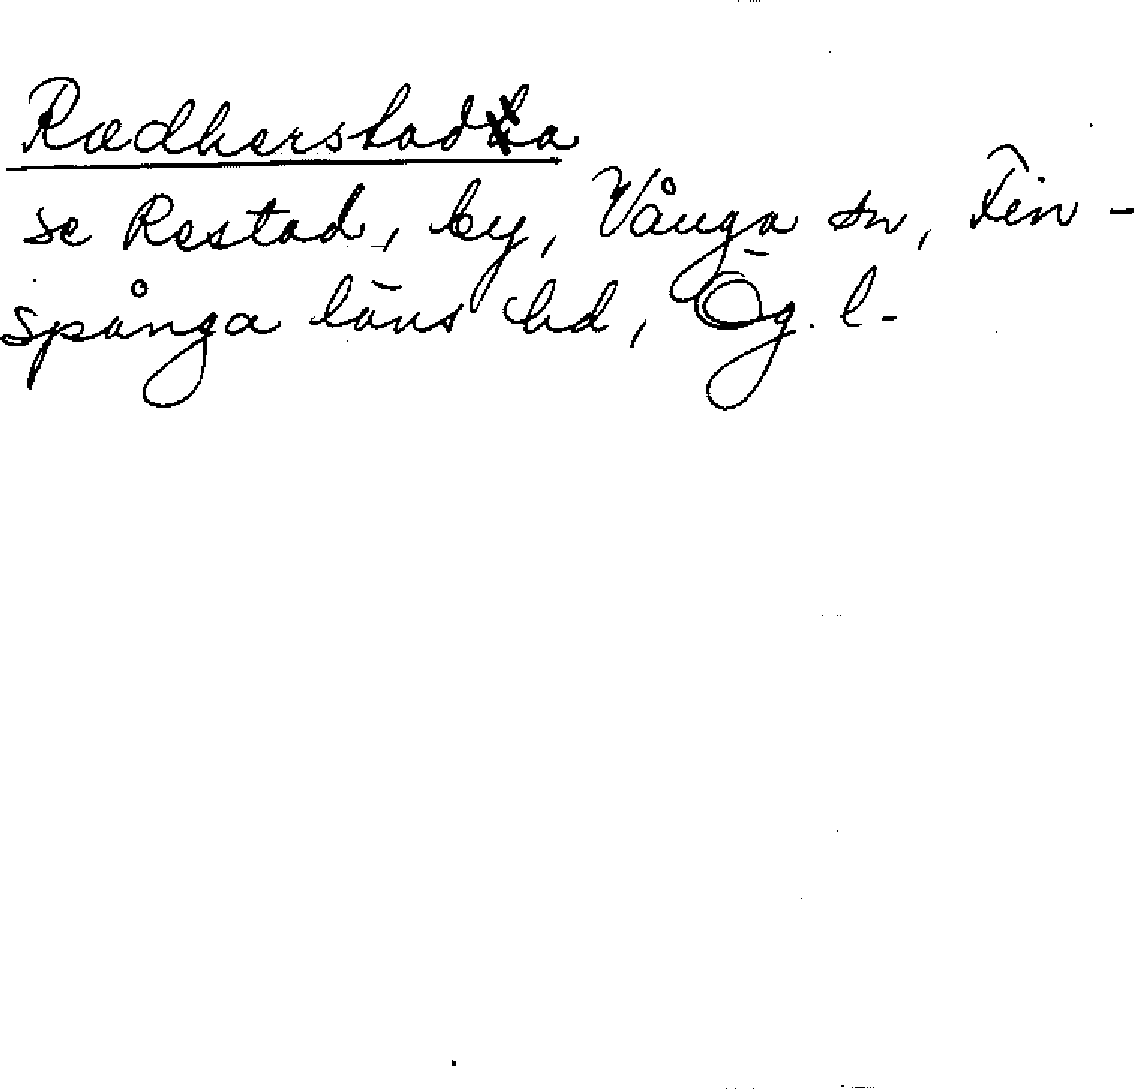 Rædherstadha
se Restad, by, Vånga sn, Fin-
spånga läns hd, Ög. l.